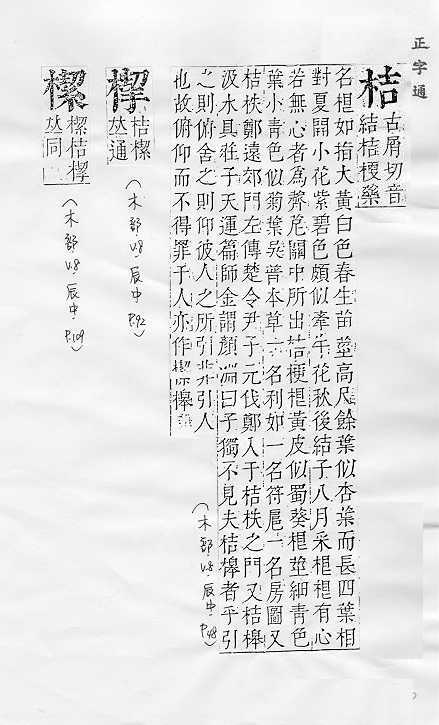 正字通
桔
古屑切音
結桔梗藥
名根如指大黃白色春生苗莖高尺餘葉似杏葉而長四葉相
對夏開小花紫碧色頗似牽牛花秋後結子八月采根根有心
若無心者為薺苨關中所出桔梗根黃皮似蜀葵根莖細青色
葉小青色似菊葉吳普本草一名利如一名符扈一名房圖又
桔柣鄭遠郊門左傳楚令尹子元伐鄭入于桔柣之門又桔槹
汲水具莊子天運篇師金謂顏淵曰子獨不見夫桔槹者乎引
之則俯舍之則仰彼人之所引非引人
也故俯仰而不得罪于人亦作㮮槹
(木部 V.8.辰中 P.48)
桔㮮
𠀤通
(木部 V.8.辰中 P.92)
㮮桔
𠀤同
(木部 V.8.辰中 P.109)